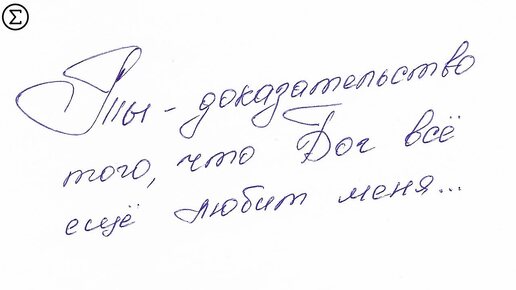 Σ
Ты - доказательство
того, что Бог всё
ещё любит меня...